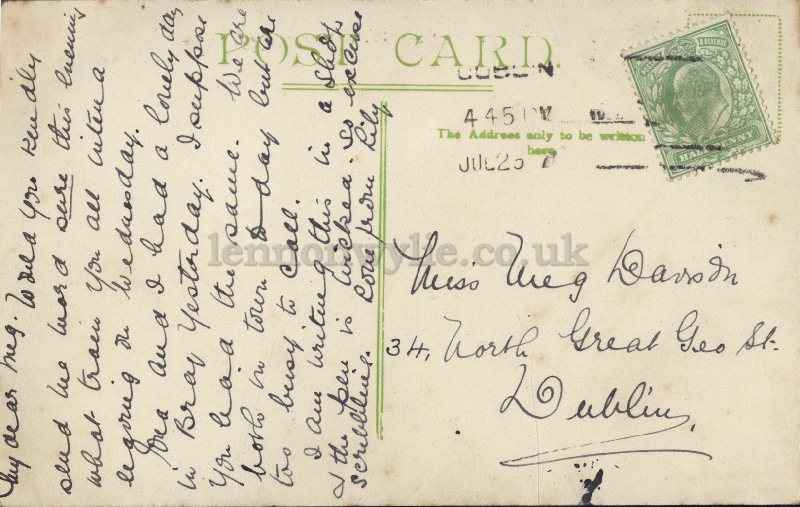 POST CARD.
The Address only to be written
here
DUBLIN
4 45 PM
JUL 23 7
POSTAGE & REVENUE
HALFPENNY
My dear Meg. Would you kindly
send me word sure this evening
what train you all inten a
egoing on Wednesday.
and I had a lovely day
in Bray Yesterday. I suppose
you had the same. We are
both in town to day but are
too busy to call.
I am writing this in a shop
& the pen is wicked so excuse
scribbling. Love from Lily
Miss Meg Davison
34, North Great Geo St.
Dublin,
lennonwylie.co.uk